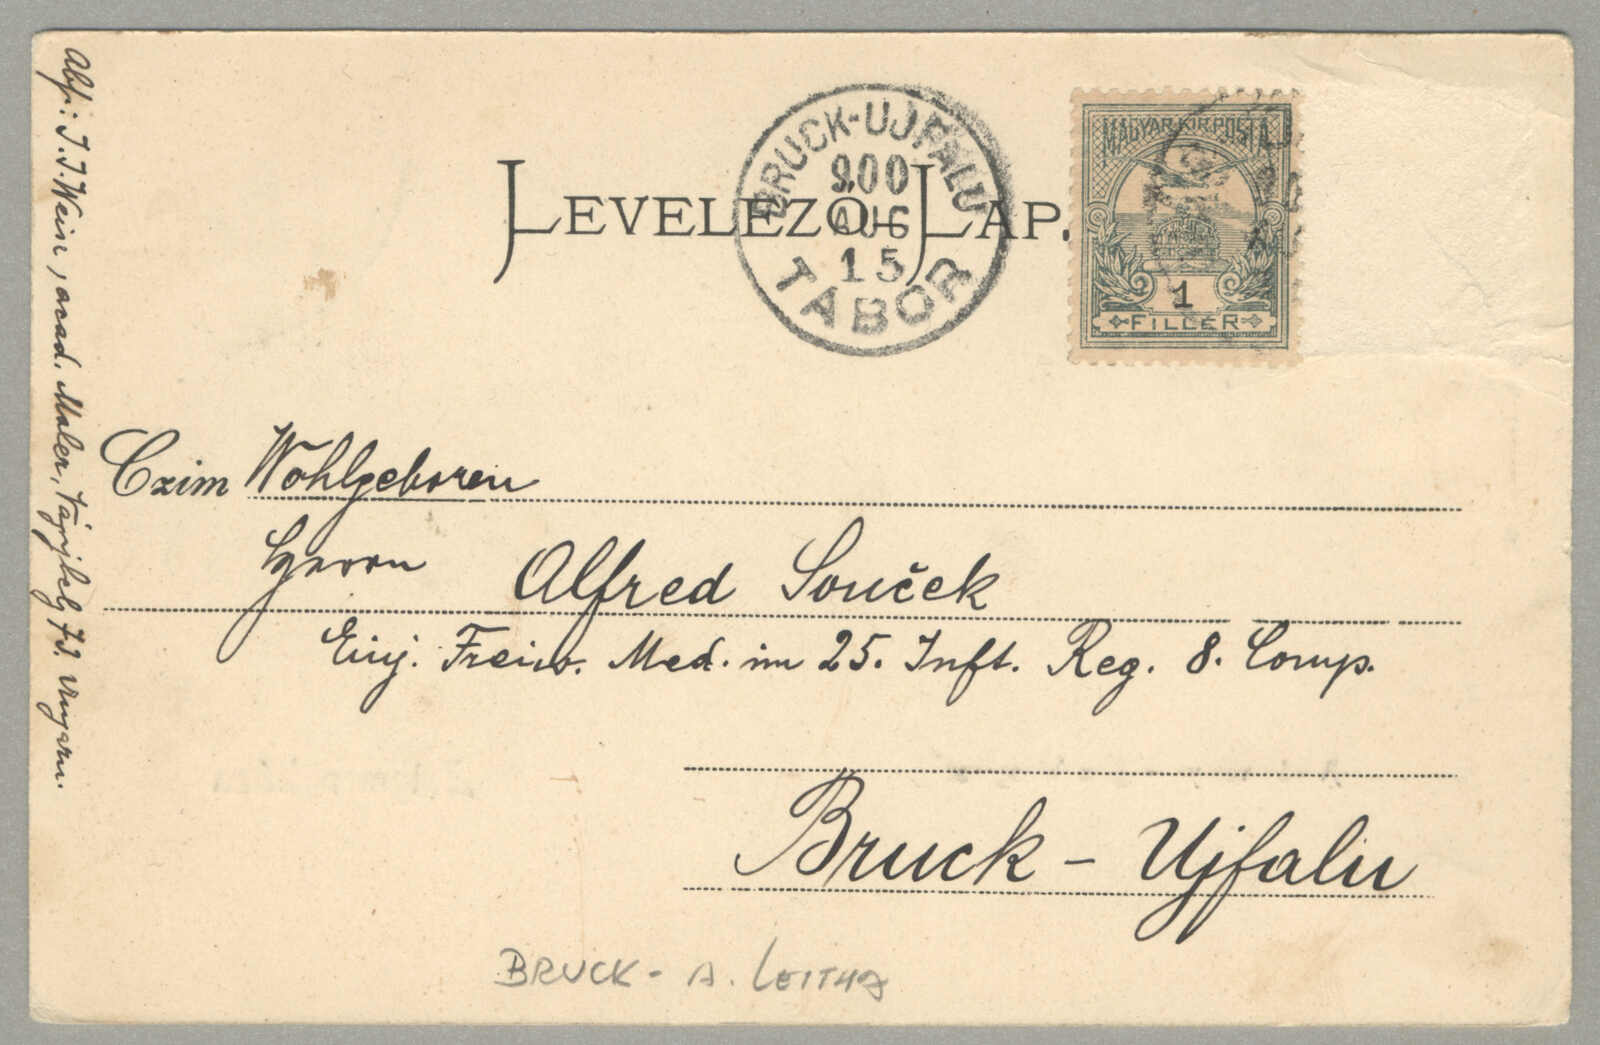 LEVELEZŐ-LAP.
BRUCK-UJFALU
900
AUG
15
TÁBOR
MAGYAR KIR. POSTA
1
FILLÉR
Czim Wohlgeboren
Herrn Alfred Souček
Einj. Freiw. Med. im 25. Inft. Reg. 8. Comp.
Bruck - Ujfalu
BRUCK - A. LEITHA
Abs: J. J. Wein, acad. Maler, Ungarn.